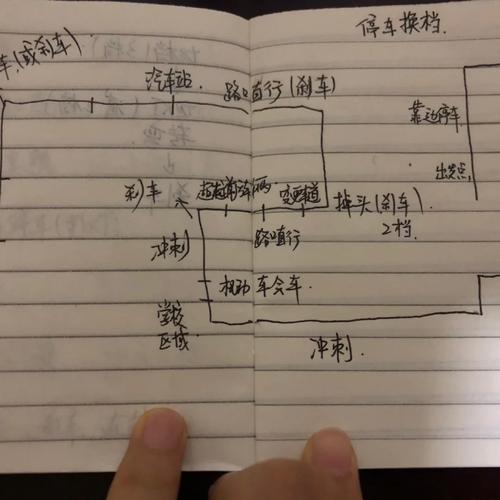 停车换档.
车.(或刹车)
汽车站.
路口直行(刹车)
靠边停车
出发点.
刹车
超越前车辆
变更车道
掉头(刹车)
2档.
冲刺
路口直行
机动车会车.
学校
区域
冲刺.